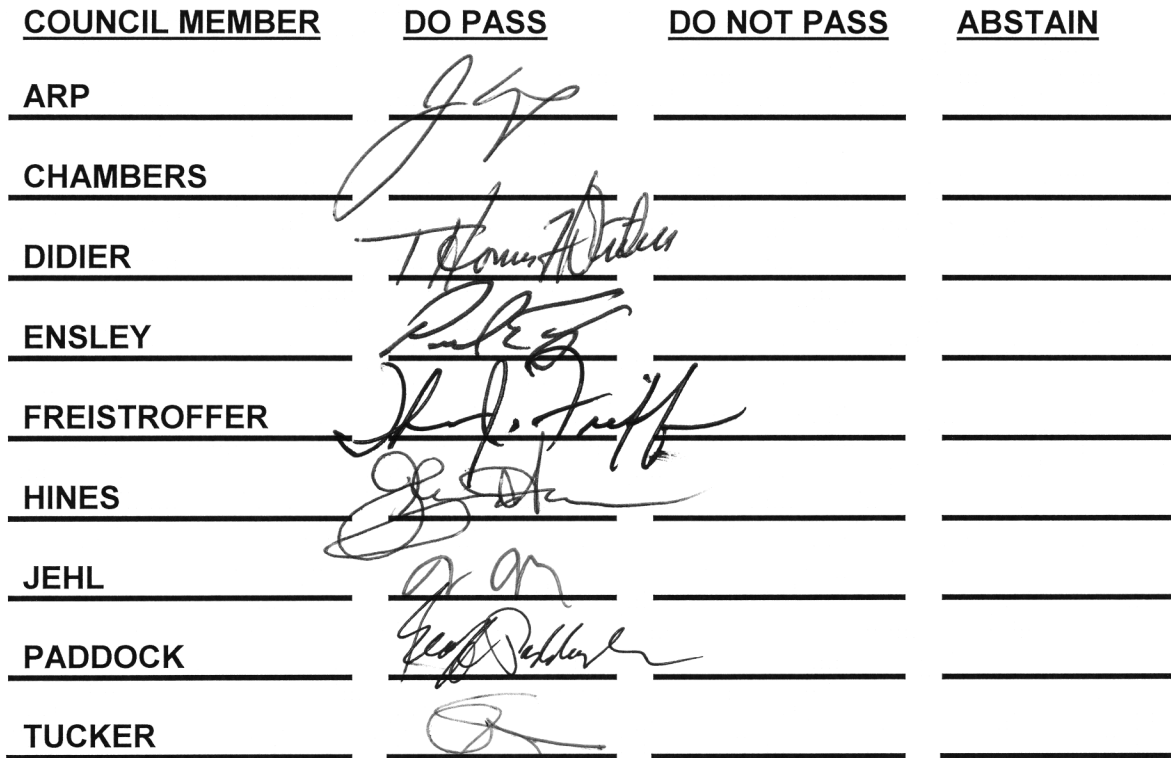 COUNCIL MEMBER DO PASS DO NOT PASS ABSTAIN
ARP
CHAMBERS
DIDIER Thomas F Didier
ENSLEY Paul E
FREISTROFFER
HINES
JEHL
PADDOCK Geoff Paddock
TUCKER